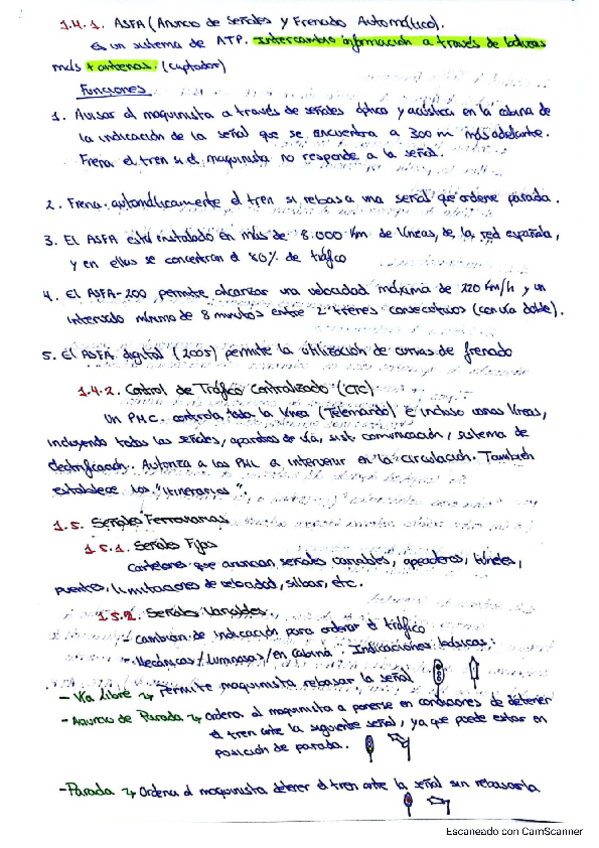 1.4.1. ASFA (Anuncio de Señales y Frenado Automático).
Es un sistema de ATP. Intercambio información a través de balizas
más + antenas. (captador)
Funciones
1. Avisar al maquinista a través de señales óptica y acústica en la cabina de
la indicación de la señal que se encuentra a 300 m más adelante.
Frena el tren si el maquinista no responde a la señal.
2. Frena automáticamente el tren si rebasa una señal que ordene parada.
3. El ASFA está instalado en más de 8.000 Km de líneas, de la red española,
y en ellas se concentran el 80% de tráfico
4. El ASFA-200 permite alcanzar una velocidad máxima de 220 Km/h y un
intervalo mínimo de 8 minutos entre 2 trenes consecutivos (con vía doble).
5. El ASFA digital (2005) permite la utilización de curvas de frenado
1.4.2. Control de Tráfico Centralizado (CTC)
Un PMC. controla toda la línea (Telemando) e incluso varias líneas,
incluyendo todas las señales, aparatos de vía, sist. comunicación, sistema de
electrificación. Autoriza a los PML a intervenir en la circulación. También
establece los "itinerarios".
1.5. Señales Ferroviarias
1.5.1. Señales Fijas
Cartelones que anuncian señales variables, apeaderos, túneles,
puentes, limitaciones de velocidad, silbar, etc.
1.5.2. Señales Variables.
- Cambian de indicación para ordenar el tráfico
- Mecánicas/Luminosas/en Cabina - Indicaciones básicas:
- Vía Libre → Permite maquinista rebasar la señal
- Anuncio de Parada → Ordena al maquinista a ponerse en condiciones de detener
el tren ante la siguiente señal, ya que puede estar en
posición de parada.
- Parada → Ordena al maquinista detener el tren ante la señal sin rebasarla
Escaneado con CamScanner